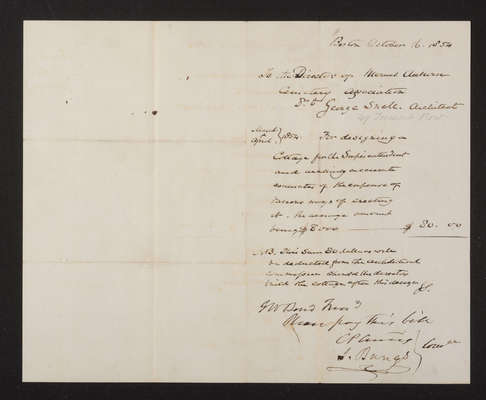 Boston October 16. 1854
To the Director of Mount Auburn
Cemetery Association
Dr to
George Snell. Architect
March &
April } 1854. For designing a
Cottage for the Superintendent
and making accurate
estimates of the expense of
various ways of erecting
it. the average amount
being $ 3000 $ 30.00
N.B. This sum 30 dollars will
be deducted from the architectural
commission should the directors
build the cottage after this design
G W Bond Treasr
Please pay this bill